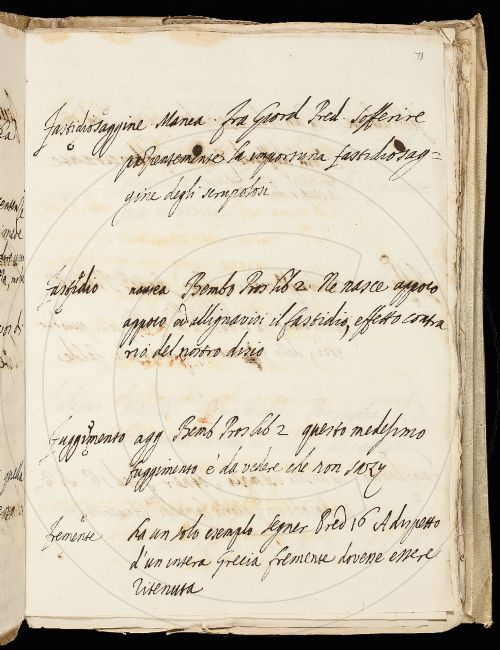 78
Fastidiosaggine. Manca. Fra Giord. Pred. Sofferire
pazientemente la importuna fastidiosag=
gine degli scrupolosi
Fastidio manca Bembo Pros lib 2 Ne nasce appoco
appoco, ed allignavisi il fastidio, effetto contra
rio del nostro disio
Fuggimento agg Bemb Pros lib 2 questo medesimo
fuggimento è da vedere che non
Fremente ha un solo esempio Segner Pred 16 A dispetto
d'un intera Grecia fremente dovesse essere
ritenuta